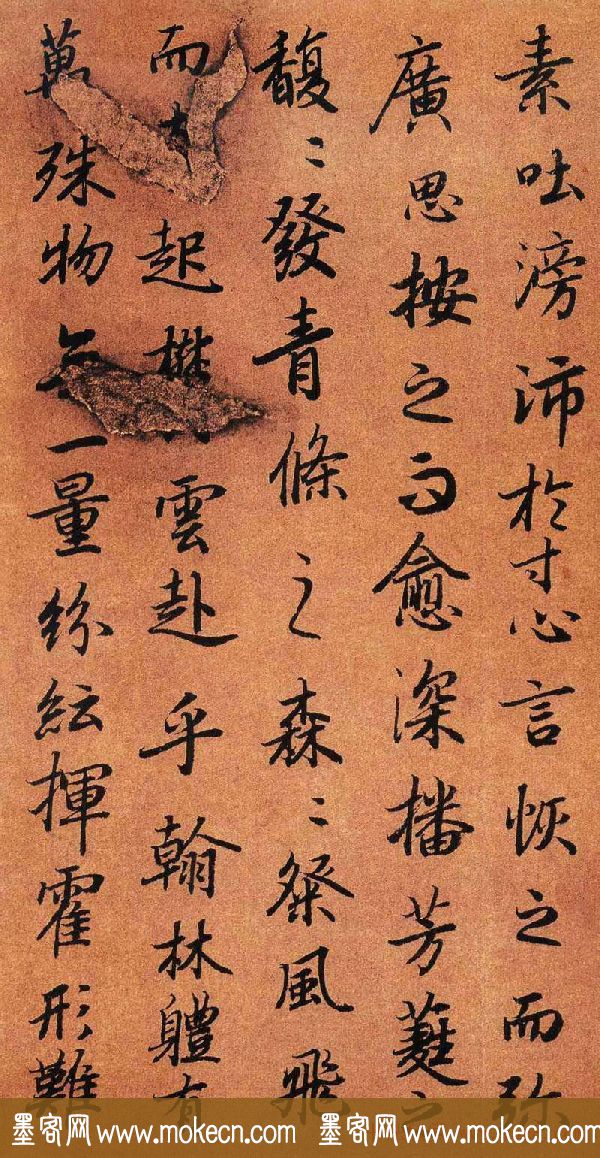 素吐滂沛於寸心言恢之而弥
廣思按之而愈深播芳蕤之
馥〻發青條之森〻粲風飛
而起雲赴乎翰林體有
萬殊物一量紛紜揮霍形難
墨客网 www.mokecn.com 墨客网 www.mokecn.com